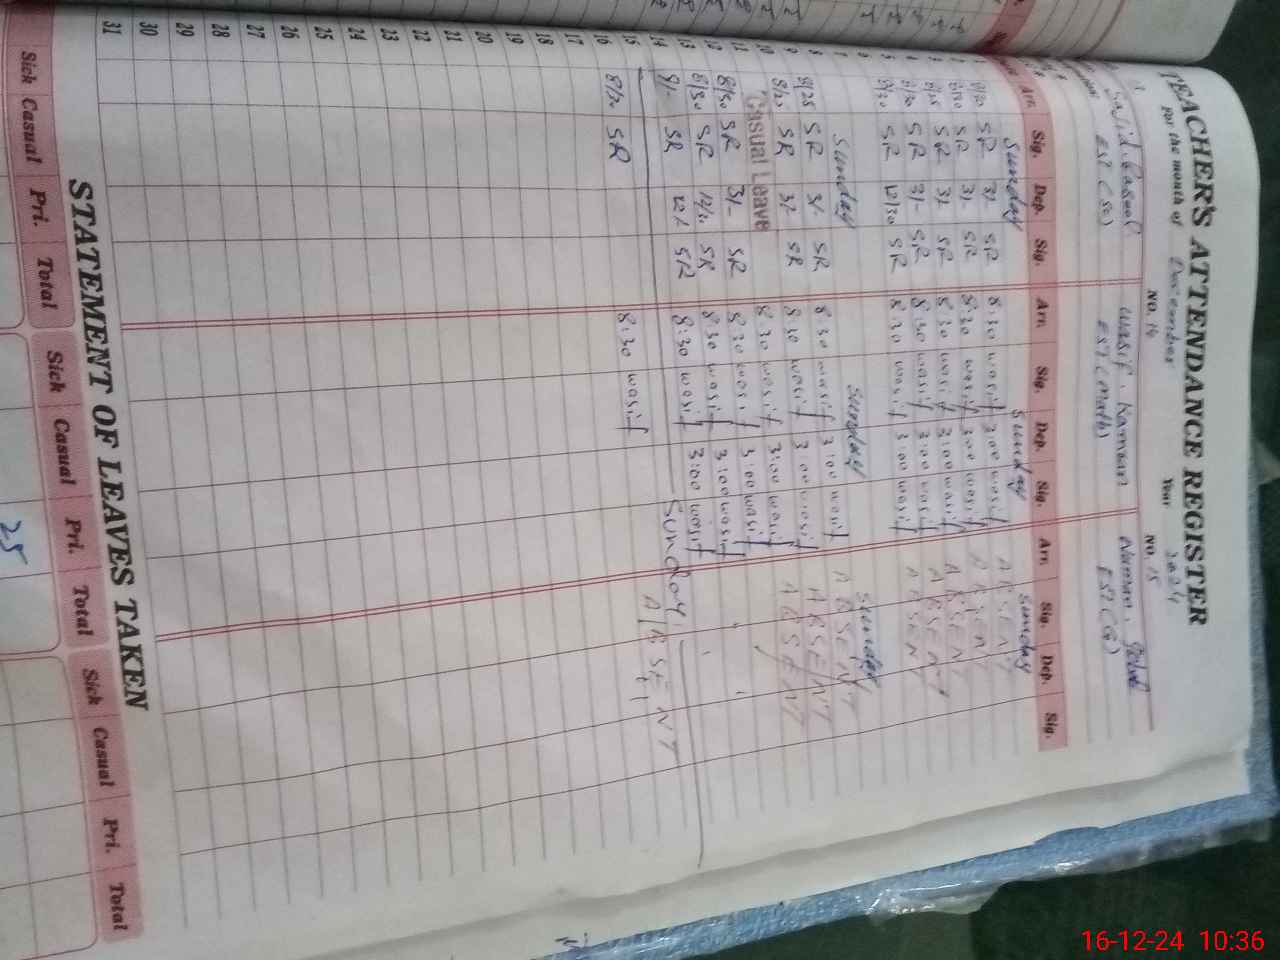 TEACHER'S ATTENDANCE REGISTER
For the month of December Year 2024
NO. 14 NO. 15
Sajid Rasool Wasif. Kamran Naman.
EST (Sc) EST (Math) EST (G)
Arr. Sig. Dep. Sig. Arr. Sig. Dep. Sig. Arr. Sig. Dep. Sig.
Sunday Sunday Sunday
8/30 SR 3/- SR 8:30 wasif 3:00 wasif ABSENT
2 8/30 SR 3/- SR 8:30 wasif 3:00 wasif ABSENT
3 8/25 SR 3/- SR 8:30 wasif 3:00 wasif ABSENT
4 8/30 SR 3/- SR 8:30 wasif 3:00 wasif ABSENT
5 8/30 SR 12/30 SR 8:30 wasif 3:00 wasif ABSENT
6
7 Sunday Sunday Sunday
8 8/25 SR 3/- SR 8:30 wasif 3:00 wasif ABSENT
9 8/25 SR 3/- SR 8:30 wasif 3:00 wasif ABSENT
10 Casual Leave 8:30 wasif 3:00 wasif ABSENT
11 8/30 SR 3/- SR 8:30 wasif 3:00 wasif
12 8/30 SR SR 8:30 wasif 3:00 wasif
13 9/- SR 12/ SR 8:30 wasif 3:00 wasif
14 Sunday
15 8/30 SR 8:30 wasif ABSENT
16
17
18
19
20
21
22
23
24
25
26
27
28
29
30
31
STATEMENT OF LEAVES TAKEN
Sick Casual Pri. Total Sick Casual Pri. Total Sick Casual Pri. Total
25
16-12-24 10:36